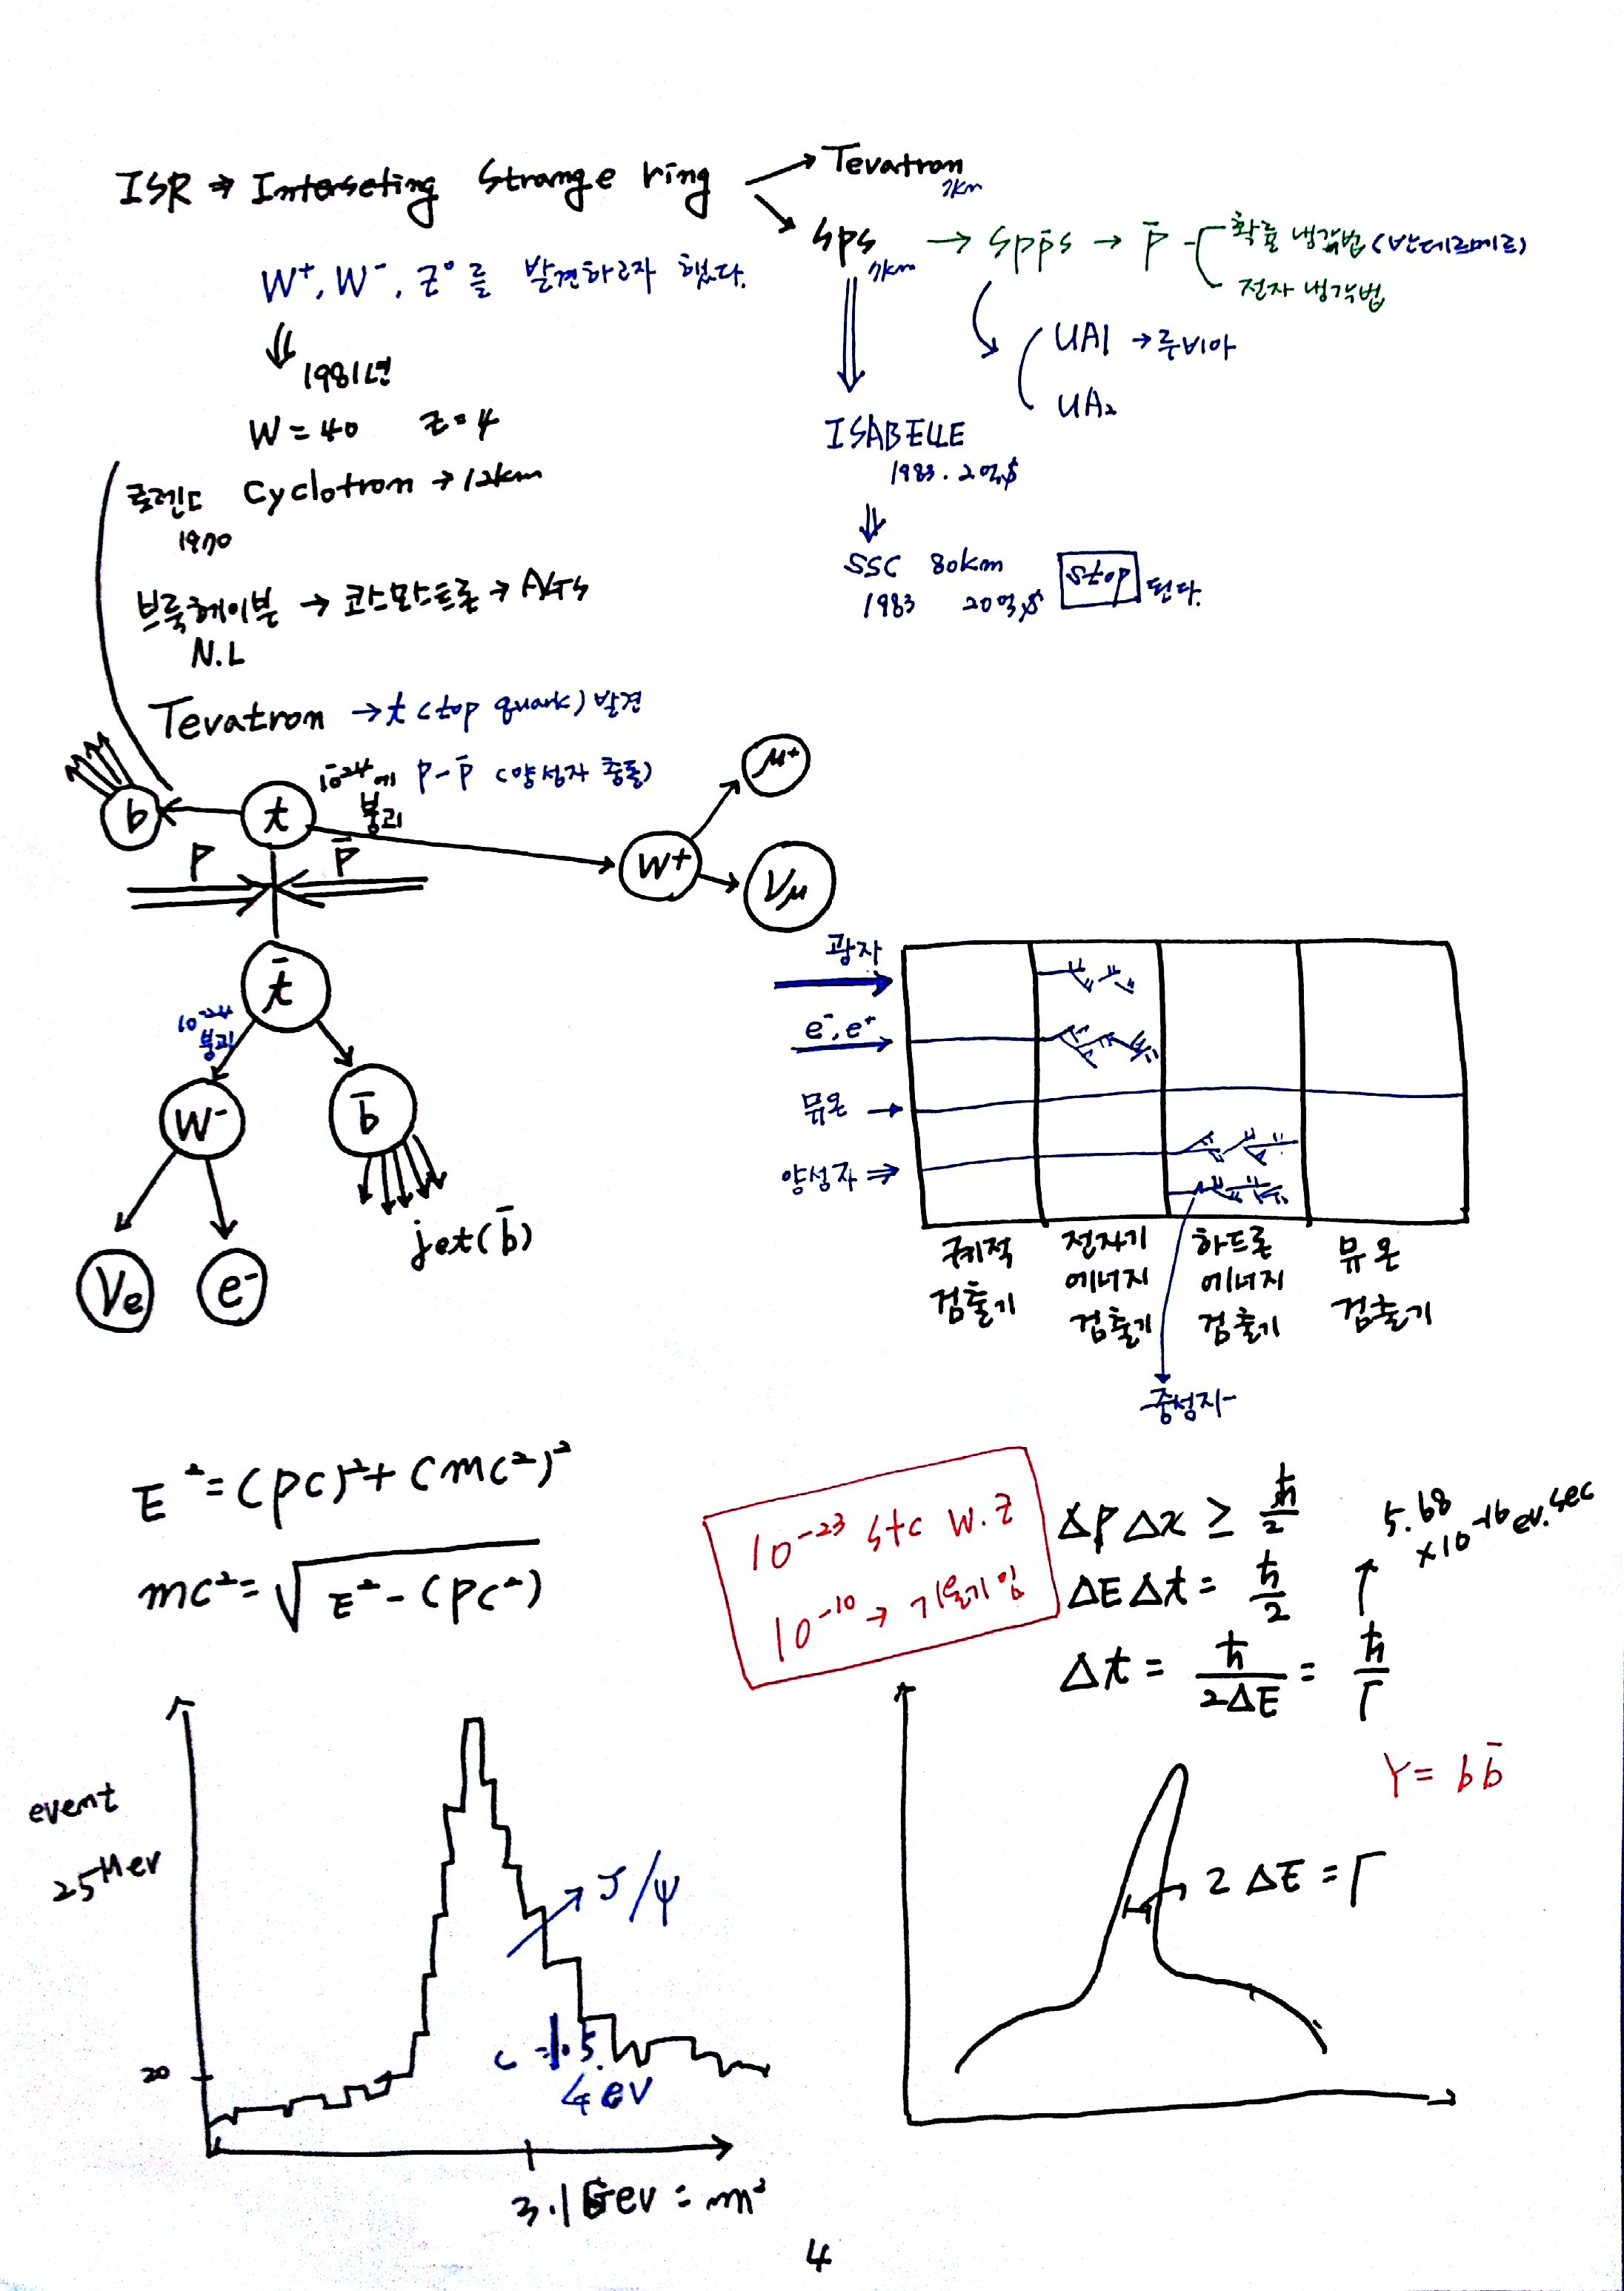 ISR ⇒ Interseting Strange ring → Tevatron
7km
→ SPS → Spp̄s → p̄ - 확률 냉각법 (반데르메르)
7km
전자 냉각법
W⁺, W⁻, Z⁰를 발견하고자 했다.
⇓ 1981년
W = 40 Z = 4
UA1 → 루비아
UA₂
ISABELLE
1983. 2억$
⇓
SSC 80km stop 된다.
1983 20억$
로렌드 Cyclotron → 12km
1970
브룩헤이븐 → 코스모스트론 → AGS
N.L
Tevatron → t (top quark) 발견
10⁻²⁴에 붕괴
P - P̄ (양성자 충돌)
b
t
P P̄
W⁺
μ⁺
νμ
t̄
10⁻²⁴
붕괴
W⁻
b̄
jet(b̄)
νe
e⁻
광자
e⁻, e⁺
뮤온 →
양성자 ⇒
궤적 검출기
전자기 에너지 검출기
하드론 에너지 검출기
뮤온 검출기
중성자
E² = (pc)² + (mc²)²
mc² = √E² - (pc²)
10⁻²³ W. Z
10⁻¹⁰ →
Δp Δx ≥ ħ/2
ΔE Δt = ħ/2
Δt = ħ/2ΔE = ħ/Γ
5.68
×10⁻¹⁶ ev.sec
event
25Mev
20
J/ψ
4 ev
3.1 Gev = m²
Υ = b b̄
2 ΔE = Γ
4